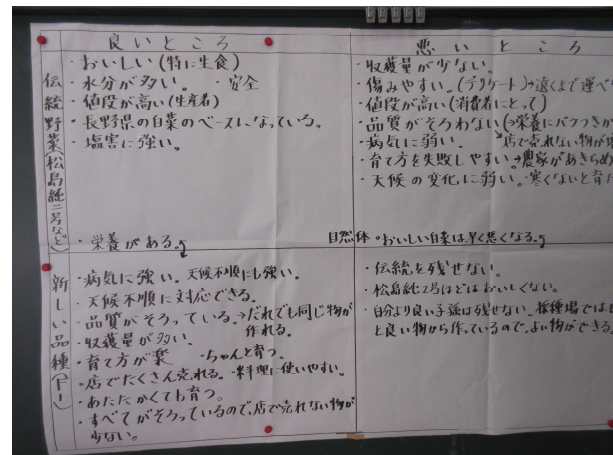 良いところ
悪いところ
伝統野菜(松島純二号など)
・おいしい(特に生食)
・水分が多い。 ・安全
・値段が高い(生産者)
・長野県の白菜のベースになっている。
・塩害に強い。
・栄養がある。
・収穫量が少ない。
・傷みやすい。(デリケート)→遠くまで運べ
・値段が高い(消費者にとって)
・品質がそろわない(→栄養にバラつきが
・病気に弱い。 →店で売れない物が
・育て方を失敗しやすい→農家があきらめ
・天候の変化に弱い。・寒くないと育た
自然体・おいしい白菜は、早く悪くなる。
新しい品種(F1)
・病気に強い。天候不順にも強い。
・天候不順に対応できる。
・品質がそろっている。→だれでも同じ物が
作れる。
・収穫量が多い。
・育て方が楽 ・ちゃんと育つ。
・店でたくさん売れる。・料理に使いやすい。
・あたたかくても育つ。
・すべてがそろっているので、店で売れない物が
少ない。
・伝統を残せない。
・松島純2号ほどはおいしくない。
・自分より良い子孫は残せない。採種場では
と良い物から作っているので、よい物ができる。